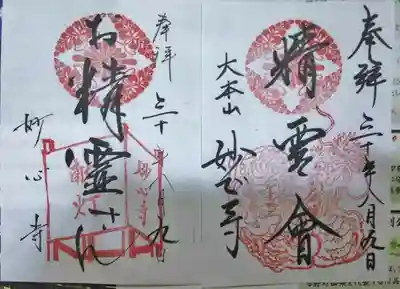 奉拝 三十年八月九日
精霊會
大本山 妙心寺
奉拝 三十年八月九日
お精霊さん
妙心寺
献灯
妙心寺